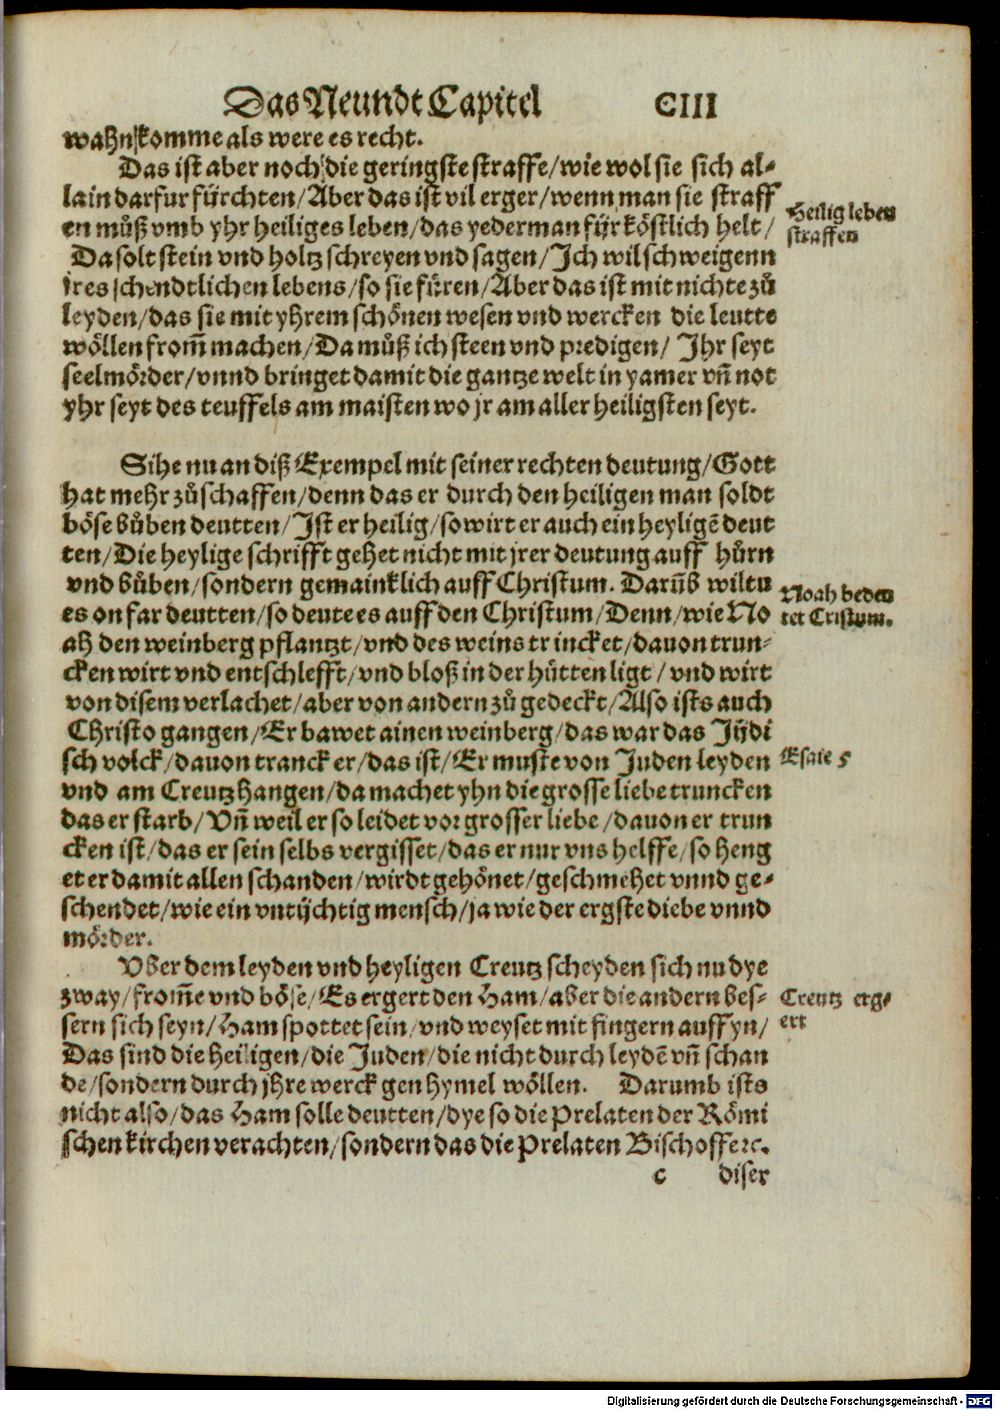 Das Neundt Capitel CIII
wahn komme als were es recht.
Das ist aber noch die geringste straffe/wie wol sie sich al⸗
lain darfur fürchten/Aber das ist vil erger/wenn man sie straff
en můß vmb yhr heiliges leben/das yederman für köstlich helt/
Heilig leben
straffen
Da solt stein vnd holtz schreyen vnd sagen/Ich wil schweigenn
jres schendtlichen lebens/so sie füren/Aber das ist mit nichte zů
leyden/das sie mit yhrem schönen wesen vnd wercken die leutte
wöllen from̃ machen/Da můß ich steen vnd predigen/ Ihr seyt
seelmörder/vnnd bringet damit die gantze welt in yamer vñ not
yhr seyt des teuffels am maisten wo jr am aller heiligsten seyt.
Sihe nu an diß Exempel mit seiner rechten deutung/Gott
hat mehr zů schaffen/denn das er durch den heiligen man soldt
böse bůben deutten/Ist er heilig/so wirt er auch ein heyligẽ deut
ten/Die heylige schrifft gehet nicht mit jrer deutung auff hůrn
vnd bůben/sondern gemainklich auff Christum. Darũb wiltu
es on far deutten/so deute es auff den Christum/Denn/wie No
Noah beden
tet Cristum.
ah den weinberg pflantzt/vnd des weins trincket/dauon trun⸗
cken wirt vnd entschlefft/vnd bloß in der hütten ligt/vnd wirt
von disem verlachet/aber von andern zů gedeckt/Also ists auch
Christo gangen/Er bawet ainen weinberg/das war das Jüdi
sch volck/dauon tranck er/das ist/Er muste von Juden leyden
Esaie 5
vnd am Creutz hangen/da machet yhn die grosse liebe truncken
das er starb/Vñ weil er so leidet vor grosser liebe/dauon er trun
cken ist/das er sein selbs vergisset/das er nur vns helffe/so heng
et er da mit allen schanden/wirdt gehönet/geschmehet vnnd ge⸗
schendet/wie ein vntüchtig mensch/ja wie der ergste diebe vnnd
mörder.
Vber dem leyden vnd heyligen Creutz scheyden sich nu dye
zway/from̃e vnd böse/Es ergert den Ham/aber die andern bes⸗
Creutz erg⸗
ert
sern sich seyn/Ham spottet sein/vnd weyset mit fingern auff yn/
Das sind die heiligen/die Juden/die nicht durch leydẽ vñ schan
de/sondern durch jhre werck gen hymel wöllen. Darumb ists
nicht also/das Ham solle deutten/dye so die Prelaten der Römi
schen kirchen verachten/sondern das die Prelaten Bischoff ꝛc.
c diser
Digitalisierung gefördert durch die Deutsche Forschungsgemeinschaft - DFG